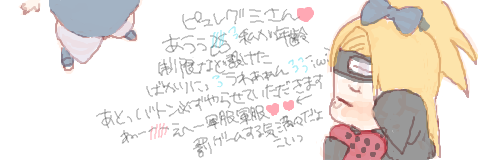 ピュレグミさん❤
あううぅぅ 私が年齢
制限など設けた
ばかりにぃ うわあぁん
あと、バトン必ずやらせていただきます
わー えへ 軍服軍服❤❤←
罰ゲームする気満々だよ
こいつ